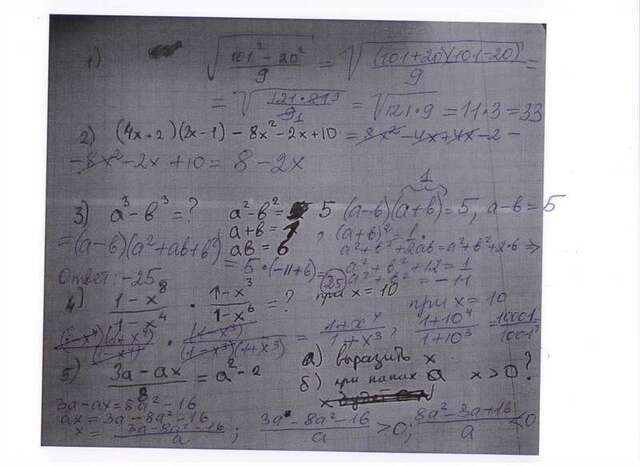 1) √((101² - 20²)/9) = √((101+20)(101-20)/9) =
= √(121·81⁹/9₁) = √(121·9) = 11·3 = 33
2) (4x+2)(2x-1) - 8x² - 2x + 10 = 8x² - 4x + 4x - 2 -
- 8x² - 2x + 10 = 8 - 2x
3) a³ - b³ = ? a² - b² = 5 (a-b)(a+b) = 5, a-b = 5
1
a+b = 1 (a+b)² = 1
= (a-b)(a²+ab+b²) ab = 6 a²+b²+2ab = a²+b²+2·6 ⇒
= 5·(-11+6) = 25 a²+b²+12 = 1
Ответ: -25 a²+b² = -11
4) (1-x⁸)/(1-x⁴) · (1-x³)/(1-x⁶) = ? при x = 10
при x = 10
(1-x⁴)(1+x⁴)/(1-x⁴) · (1-x³)/((1-x³)(1+x³)) = (1+x⁴)/(1+x³), (1+10⁴)/(1+10³) = 10001/1001
5) (3a-ax)/8 = a² - 2 а) выразить x
б) при каких a x > 0?
3a - ax = 8a² - 16
ax = 3a - 8a² - 16
x = (3a-8a²-16)/a ; (3a-8a²-16)/a > 0; (8a²-3a+16)/a < 0